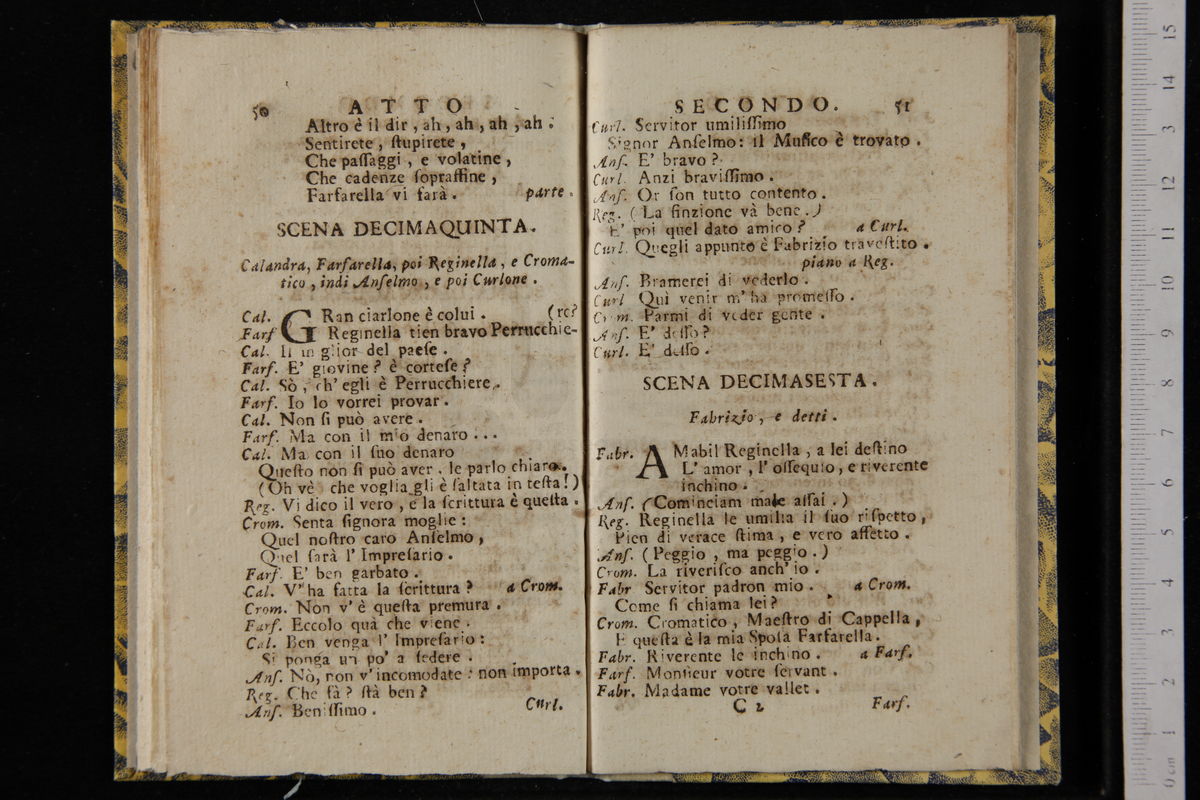 50 ATTO
Altro è il dir, ah, ah, ah, ah.
Sentirete, ſtupirete,
Che paſſaggi, e volatine,
Che cadenze ſopraffine,
Farfarella vi farà. parte.
SCENA DECIMAQUINTA.
Calandra, Farfarella, poi Reginella, e Croma-
tico, indi Anſelmo, e poi Curlone.
Cal. GRan ciarlone è colui. (re?
Farſ Reginella tien bravo Perrucchie-
Cal. Il miglior del paeſe.
Farſ. E' giovine? è corteſe?
Cal. Sò, ch' egli è Perrucchiere.
Farſ. Io lo vorrei provar.
Cal. Non ſi può avere.
Farſ. Ma con il mio denaro...
Cal. Ma con il ſuo denaro
Queſto non ſi può aver, le parlo chiaro.
(Oh vè che voglia gli è ſaltata in teſta!)
Reg. Vi dico il vero, e la ſcrittura è queſta.
Crom. Senta ſignora moglie:
Quel noſtro caro Anſelmo,
Quel ſarà l' Impreſario.
Farſ. E' ben garbato.
Cal. V' ha fatta la ſcrittura? a Crom.
Crom. Non v' è queſta premura.
Farſ. Eccolo quà che viene.
Cal. Ben venga l' Impreſario:
Si ponga un po' a ſedere.
Anſ. Nò, non v' incomodate: non importa.
Reg. Che fà? ſtà ben?
Anſ. Beniſſimo. Curl.
SECONDO. 51
Curl. Servitor umiliſſimo
Signor Anſelmo: il Muſico è trovato.
Anſ. E' bravo?
Curl. Anzi braviſſimo.
Anſ. Or ſon tutto contento.
Reg. (La finzione và bene.)
E' poi quel dato amico? a Curl.
Curl. Quegli appunto è Fabrizio traveſtito.
piano a Reg.
Anſ. Bramerei di vederlo.
Curl Quì venir m' ha promeſſo.
Crom. Parmi di veder gente.
Anſ. E' deſſo?
Curl. E' deſſo.
SCENA DECIMASESTA.
Fabrizio, e detti.
Fabr. AMabil Reginella, a lei deſtino
L' amor, l' oſſequio, e riverente
inchino.
Anſ. (Cominciam male aſſai.)
Reg. Reginella le umilia il ſuo riſpetto,
Pien di verace ſtima, e vero affetto.
Anſ. (Peggio, ma peggio.)
Crom. La riveriſco anch' io.
Fabr Servitor padron mio. a Crom.
Come ſi chiama lei?
Crom. Cromatico, Maeſtro di Cappella,
E queſta è la mia Spoſa Farfarella.
Fabr. Riverente le inchino. a Farſ.
Farſ. Monſieur votre ſervant.
Fabr. Madame votre vallet.
C 2 Farſ.
0 cm 1 2 3 4 5 6 7 8 9 10 11 12 13 14 15